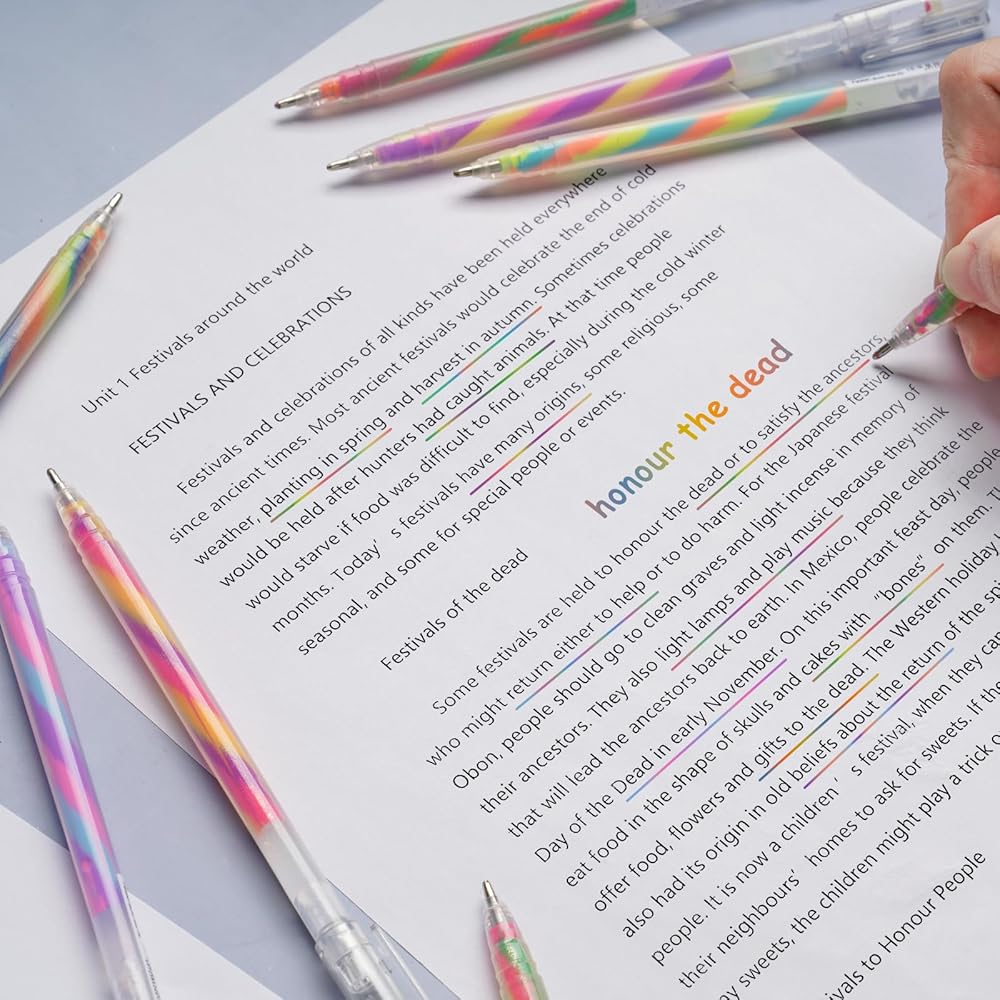 Unit 1 Festivals around the world
FESTIVALS AND CELEBRATIONS
Festivals and celebrations of all kinds have been held everywhere
since ancient times. Most ancient festivals would celebrate the end of cold
weather, planting in spring and harvest in autumn. Sometimes celebrations
would be held after hunters had caught animals. At that time people
would starve if food was difficult to find, especially during the cold winter
months. Today's festivals have many origins, some religious, some
seasonal, and some for special people or events.
Festivals of the dead
honour the dead
Some festivals are held to honour the dead or to satisfy the ancestors,
who might return either to help or to do harm. For the Japanese festival
Obon, people should go to clean graves and light incense in memory of
their ancestors. They also light lamps and play music because they think
that will lead the ancestors back to earth. In Mexico, people celebrate the
Day of the Dead in early November. On this important feast day, people
eat food in the shape of skulls and cakes with "bones" on them.
offer food, flowers and gifts to the dead. The Western holiday
also had its origin in old beliefs about the return of the
people. It is now a children's festival, when they
their neighbours' homes to ask for sweets. If
sweets, the children might play a trick
to Honour People